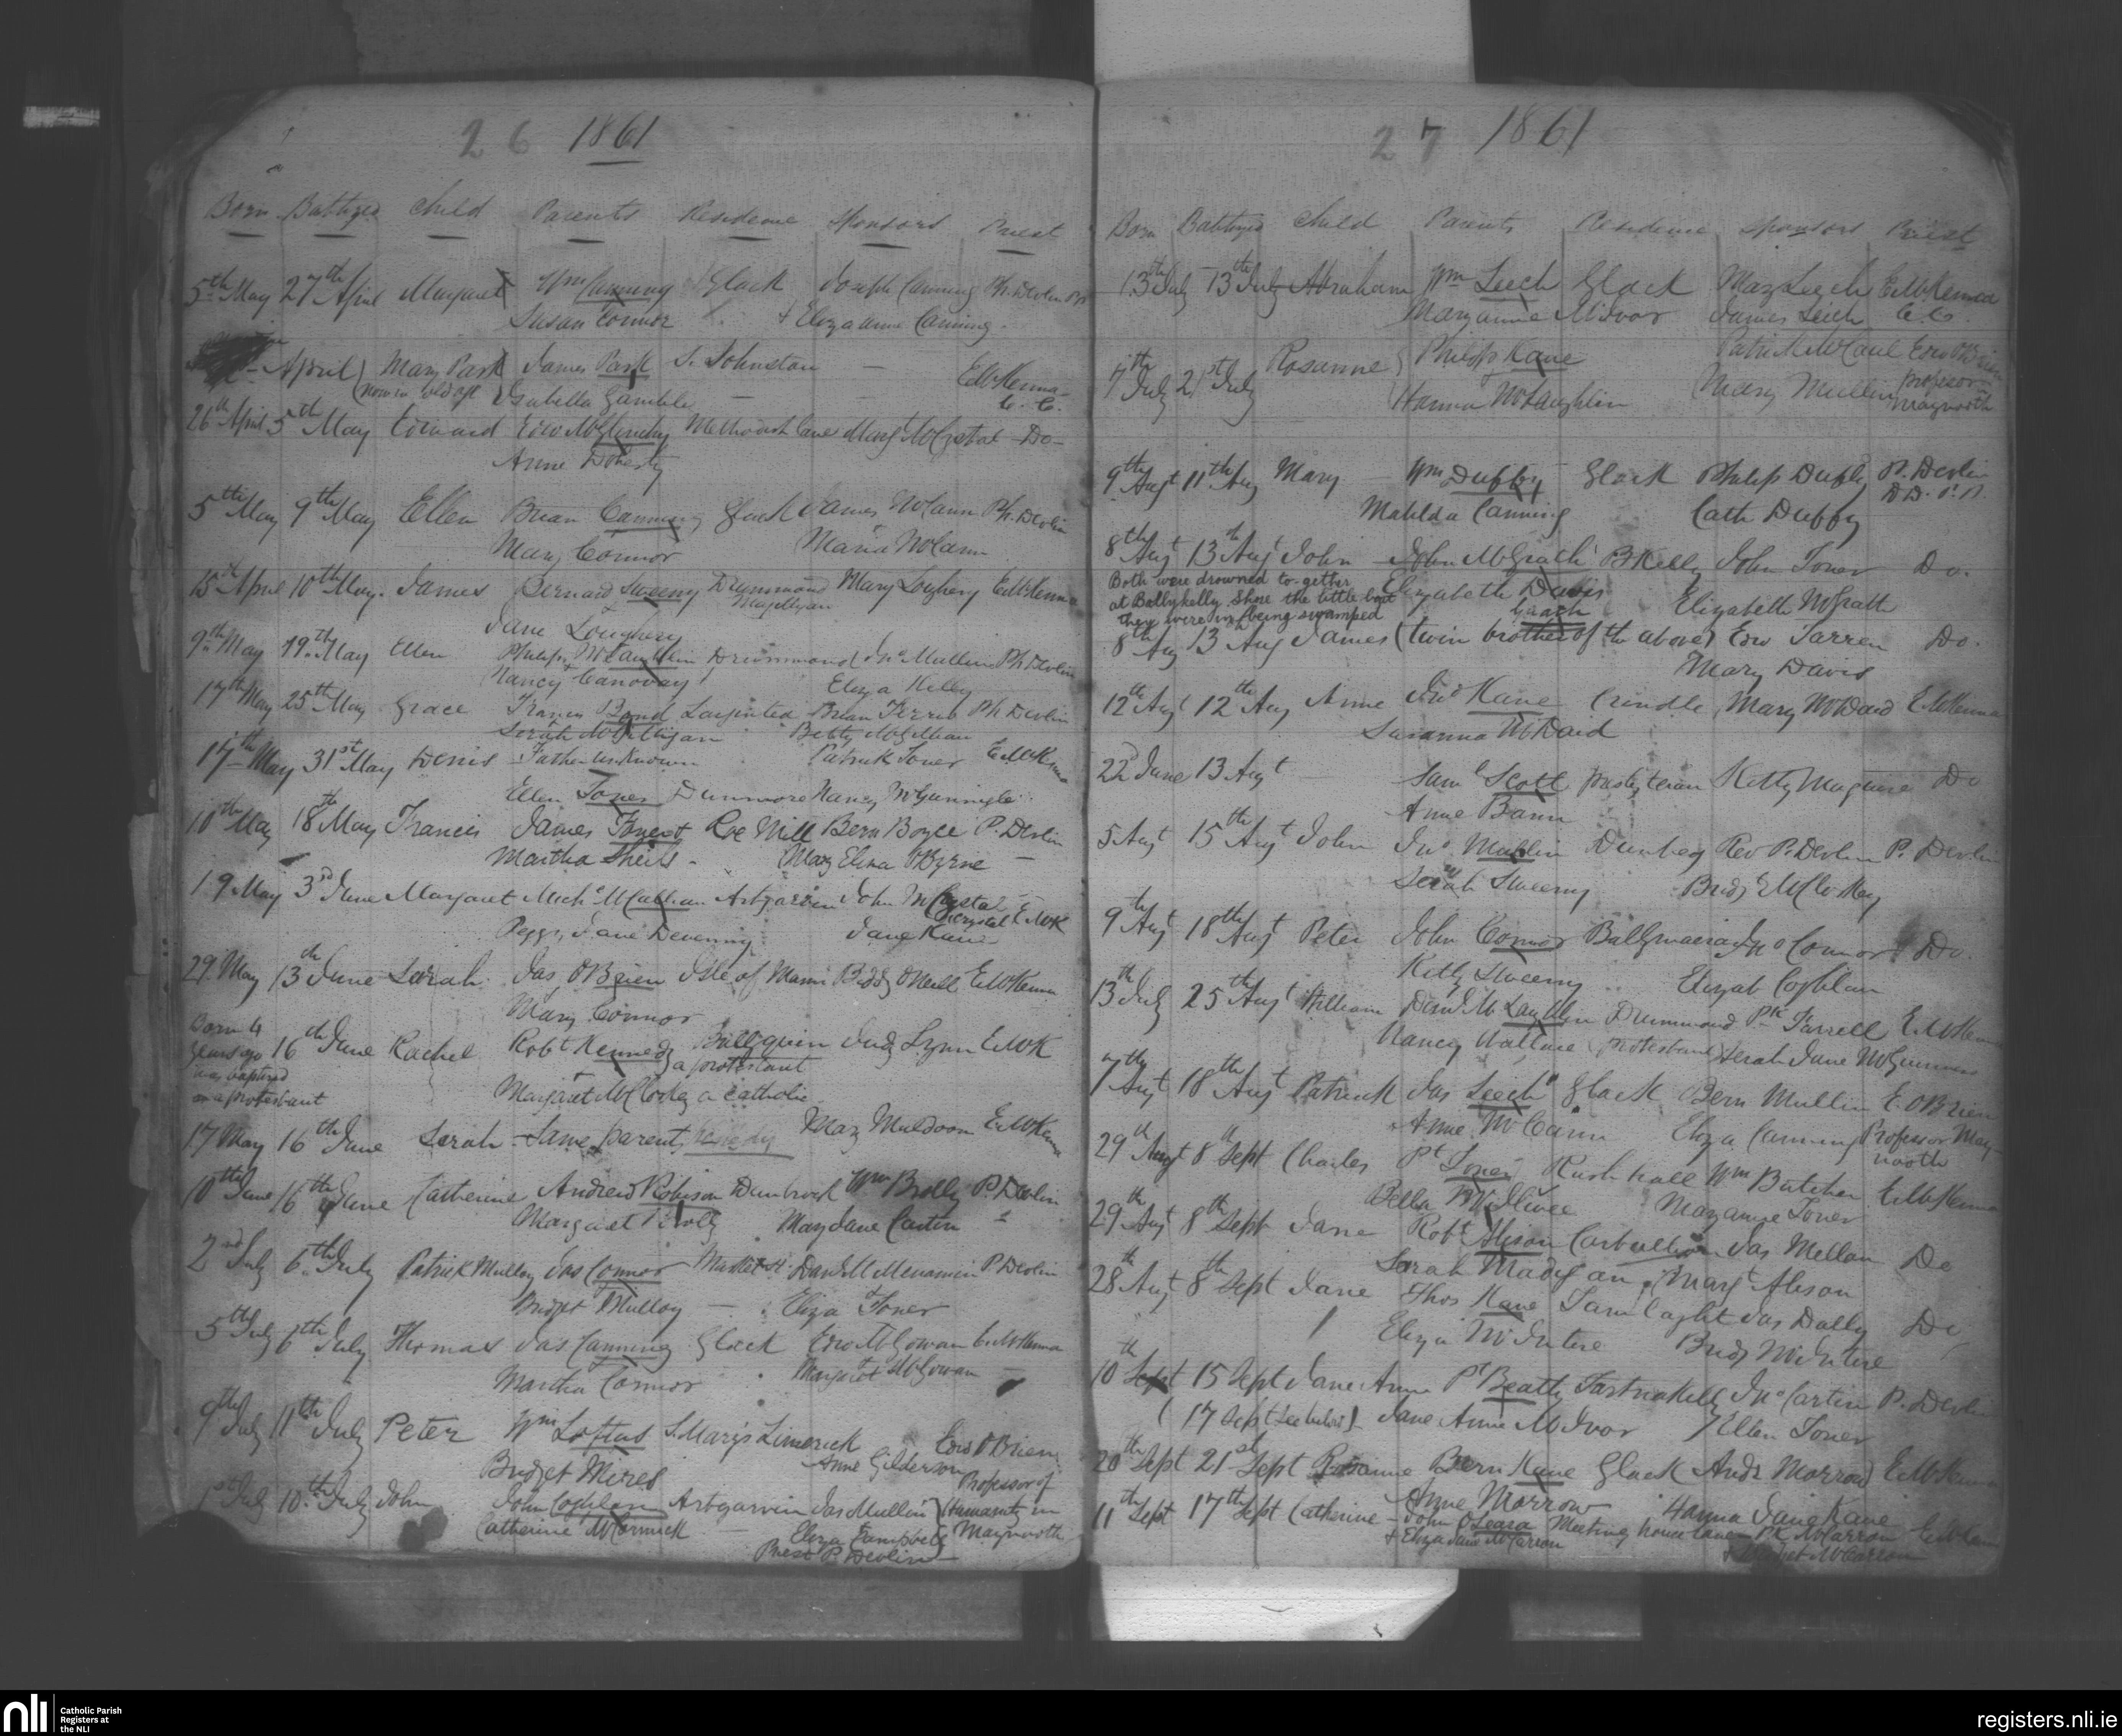 26 1861
Born Babtized Child Parents Residence Sponsors Priest
5th May 27th April Margaret Wm Canning Glack Joseph Canning Ph. Devlin PP
Susan Connor + Eliza anne Canning
April Mary Park James Park S. Johnston E McKenna
Isabella Gamble C. C.
26th April 5th May Edward Edw McGlinchy Methodist lane Marg McCrystal -Do-
Anne Doherty
5th May 9th May Ellen Brian Canning Glack James McCann Ph. Devlin
Mary Connor Maria McCann
15th April 10th May James Bernard Sweeny Drummond Mary Loughery E McKenna
Magilligan
Jane Loughery
9th May 19th May Ellen Philip McLaughlin Drummond Jno Mullin Ph Devlin
Nancy Canovay Eliza Kelly
17th May 25th May Grace Francis Bond Brian Ferris Ph Devlin
Sarah McGilligan Betty
17th May 31st May Denis Father unknown Patrick Toner E McKenna
Ellen Toner Dunmore Nancy McGunnigle
10th May 18th May Francis James Toner Roe Mill Bern Boyce P. Devlin
Martha Sheils Mary Eliza O'Byrne
19 May 3rd June Margaret Michl McCallian Artgarvin John McCrystal
Crystal E McK
Peggy Jane Devenny Jane Kane
29 May 13th June Sarah Jas O'Brien Isle of Mann Biddy O'Neill E McKenna
Mary Connor
Born 4
years ago 16th June Rachel Robt Kennedy Ballyquin Judy Lynn E McK
was baptised a protestant
as a protestant Margaret McCloskey a catholic
17 May 16th June Sarah - Same parents, Kennedy Mary Muldoon E McKenna
10th June 16th June Catherine Andrew Robison Dunbrock Wm Brolly P. Devlin
Margaret Brolly Mary Jane Cartin
2nd July 6th July Patrick Mulloy Jas Connor Market St. Danl McMenamin P Devlin
Bridget Mulloy Eliza Toner
5th July 6th July Thomas Jas Canning Glack Edw McGowan E McKenna
Martha Connor Margaret McGowan
9th July 11th July Peter Wm Loftus S. Mary's Limerick Edw O'Brien
Anne Gilderson
Bridget Mires Professor of
1st July 10th July John John Coghlan Artgarvin Jas Mullin Humanity in
Catherine McCormick Eliza Campbell Maynooth
Priest P Devlin
27 1861
Born Babtized Child Parents Residence Sponsors Priest
13th July 13th July Abraham Wm Leech Glack Mary Leech E McKenna
Maryanne McIvor James Leech C.C.
7th July 21st July Rosanne Philip Kane Patrick McCaul Edw O'Brien
Hanna McLaughlin Mary Mullin professor
Maynooth
9th Augt 11th Aug Mary Wm Duffy Glack Philip Duffy P. Devlin
D.D. P.P.
Matilda Canning Cath Duffy
8th Augt 13th Augt John John McGrath B Kelly John Toner Do.
Both were drowned to-gether Elizabeth Davis Elizabeth McGrath
at Ballykelly Shore the little boat
they were in being swamped
8th Aug 13 Aug James (twin brother of the above) Edw Farren Do.
Mary Davis
12th Augt 12th Aug Anne Jno Kane Crindle Mary McDaid E McKenna
Susanna McDaid
22d June 13 Augt Saml Scott presbyterian Kitty Maguire Do
Anne Bann
5 Augt 15th Augt John Jno Mullin Dunbeg Rev P. Devlin P. Devlin
Sarah Sweeny Bridgt McCloskey
9th Augt 18th Augt Peter John Connor Ballymacra Jno Connor Do.
Kitty Sweeny Elizab Coghlan
13th July 25th Augt William Danl McLaughlin Drummond Pk Farrell E McKenna
Nancy Wallace (protestant) Sarah Jane McGuinness
7th Augt 18th Augt Patrick Jas Leech Glack Bern Mullin E. O'Brien
Anne McCann Eliza Canning Professor May-
nooth
29th Augt 8th Sept Charles Pt Toner Rush hall Wm Butcher E McKenna
Bella McIlwee Maryanne Toner
29th Augt 8th Sept Jane Robt Alison Carbullion Jas Mellan Do
Sarah Madigan Margt Alison
28th Augt 8th Sept Jane Thos Kane Tamlaght Jas Dolly Do
Eliza McIntire Bridg McIntire
10th Sept 15 Sept Jane Anne Pt Beatty Jno Cartin P. Devlin
(17 Sept see below) Jane Anne McIvor Ellen Toner
20th Sept 21st Sept Rosanne Bern Kane Glack Andr Morrow E McKenna
Anne Morrow Hanna Jane Kane
11th Sept 17th Sept Catherine - John O'Leara Meeting house lane - Pk McCarron E McKenna
+ Eliza Jane McCarron + Bridget McCarron
nli
Catholic Parish
Registers at
the NLI
registers.nli.ie